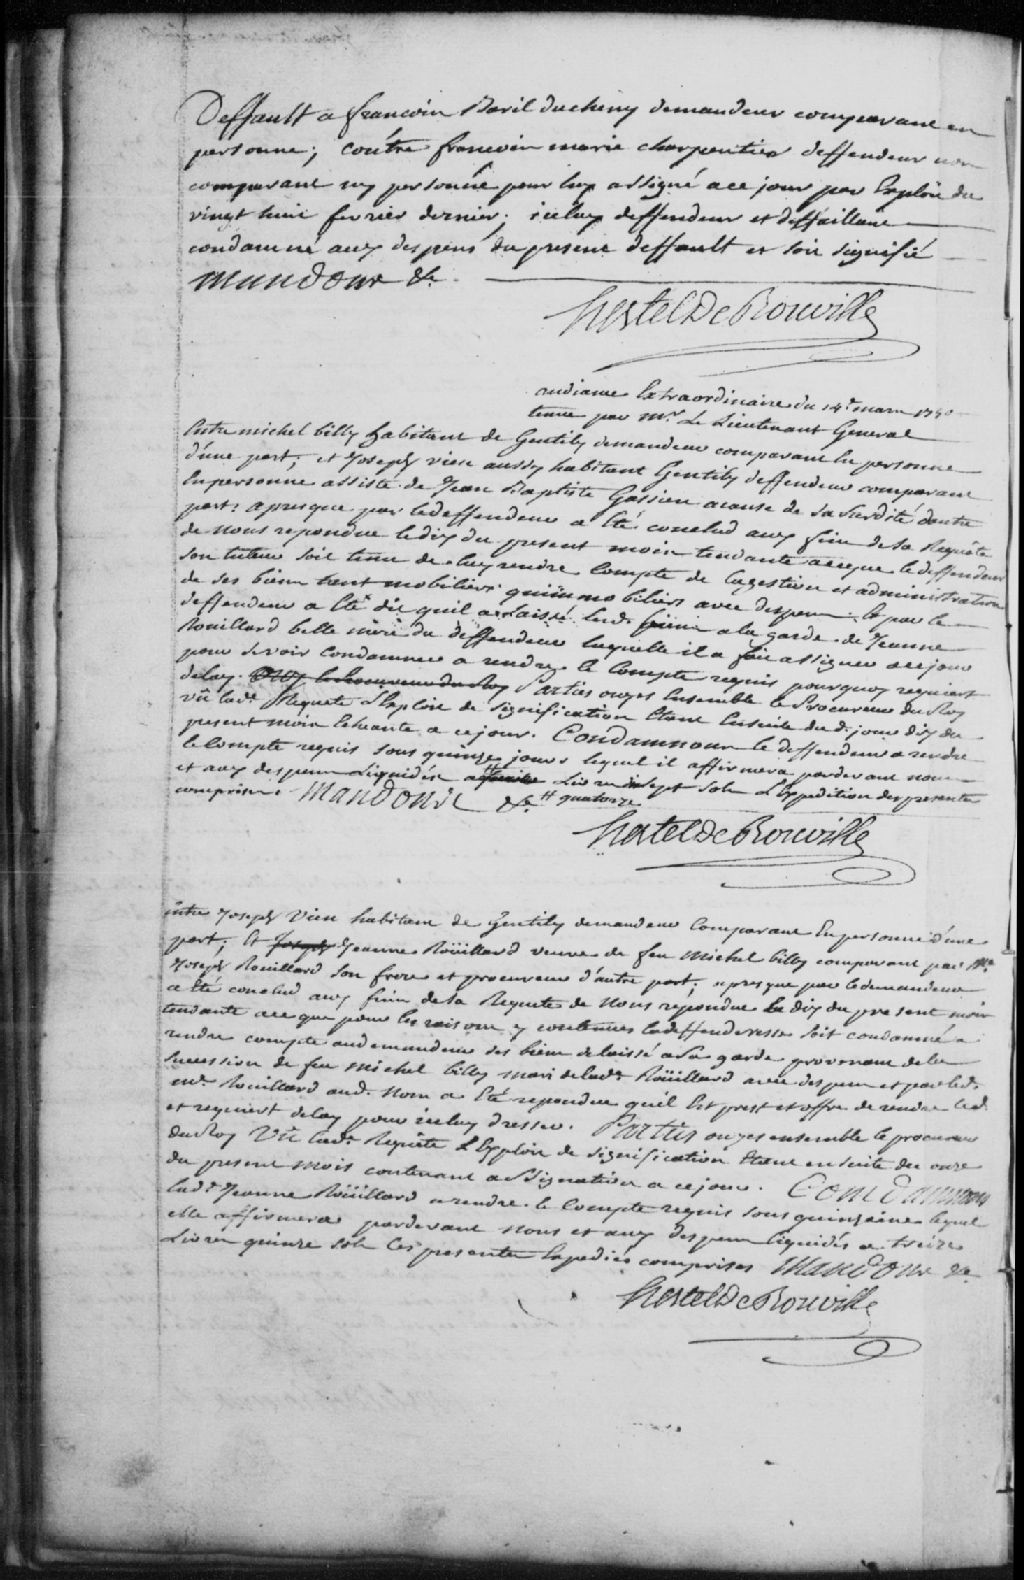 Deffault a francois Baril ducheny demandeur comparant en
personne; contre francois marie charpentier deffendeur non
comparant ny personne pour luy assigné a ce jour par Exploit du
vingt huit fevrier dernier; iceluy deffendeur et deffaillant
condamné aux despens du present deffault et soit signifié
Mandons &c.
hertel De Rouville
audiance Extraordinaire du 14e mars 1740
tenue par Mr. Le Lieutenant General
Entre michel billy habitant de Gentily demandeur comparant En personne
d'une part; et Joseph vien aussy habitant Gentily deffendeur comparant
En personne assisté de Jean Baptiste Gassien a cause de sa surdité d'autre
part; apres que par ledeffendeur a Eté conclud aux fins de sa Requête
de nous repondue le dix du present mois tendante a ce que le deffendeur
son tuteur soit tenu de luy rendre Compte de la gestion et administration
de ses biens tent mobiliers qu'immobiliers avec despens. Et par le
deffendeur a Eté dit quil a Laissé lesd. biens a la garde de Jeanne
Rouillard belle mere du deffendeur laquelle il a fait assigner a ce jour
pour se voir condamnee a rendre le Compte requis pourquoy requiert
delay. Ouy le Procureur du Roy Parties ouyes Ensemble le Procureur du Roy
vû lade. Requete L'Exploit de signification Etant Ensuite du d. jour dix du
present mois Echeante a ce jour. Condamnons le deffendeur a rendre
le Compte requis sous quinze jours lequel il affirmera pardevant nous
et aux despens Liquidés a Livres sept sols L'Expedition des presentes
comprises. Mandons &c. # quatorze
hertel De Rouville
Entre Joseph Vien habitant de Gentily demandeur Comparant En personne d'une
part; Et Joseph Jeanne Roüillard veuve de feu Michel billy comparant par Me
Joseph Rouillard son frere et procureur d'autre part; apres que par ledemandeur
a Eté conclud aux fins de sa Requete de Nous repondue Le dix du present mois
tendante a ce que pour les raisons y contenues ladeffenderesse soit condamné a
rendre compte audemandeur des biens delaissé a sa garde provenant de la
succession de feu michel billy mari de lade. Roüillard avec despens et par led.
me. Rouillard aud. nom a Eté repondu quil Est prest et offre de rendre led.
et requiert delay pour iceluy dresser. Parties ouyes ensemble le procureur
du Roy Vû lade. Requête L'Exploit de signification Etant ensuite du onze
du present mois contenant assignation a ce jour. Condamnons
lade. Jeanne Roüillard a rendre le Compte requis sous quinzaine lequel
elle affirmera pardevant nous et aux despens liquidés a treize
Livres quinze sols Ces presentes Expediées comprises Mandons &c.
hertel De Rouville